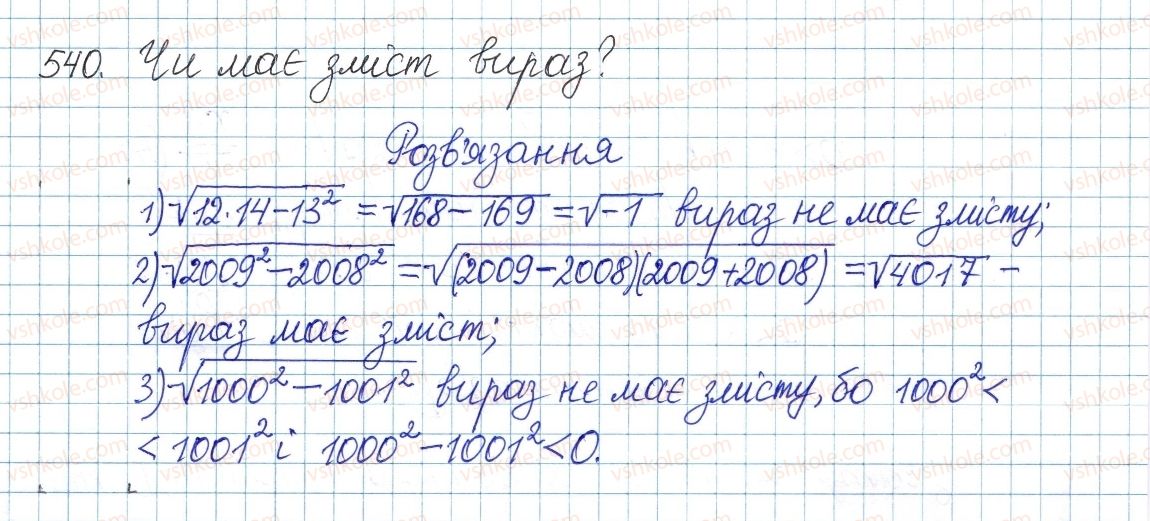 540. Чи має зміст вираз?
Розв'язання
1) √(12·14-13²) = √(168-169) = √(-1) вираз не має змісту;
2) √(2009²-2008²) = √((2009-2008)(2009+2008)) = √4017 -
вираз має зміст;
3) √(1000²-1001²) вираз не має змісту, бо 1000² <
< 1001² і 1000²-1001² < 0.